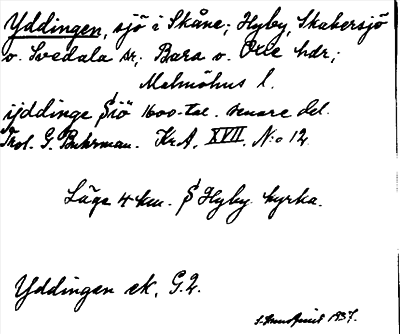 Yddingen, sjö i Skåne; Hyby, Skabersjö
o. Svedala sr; Bara o. Oxie hdr;
Malmöhus l.
ijddinge Siö 1600-tal. senare del.
Trol. G. Buhrman. Kr.A. XVII. N:o 12
Läge 4 km. S Hyby kyrka.
Yddingen ek. G.2.
1937.